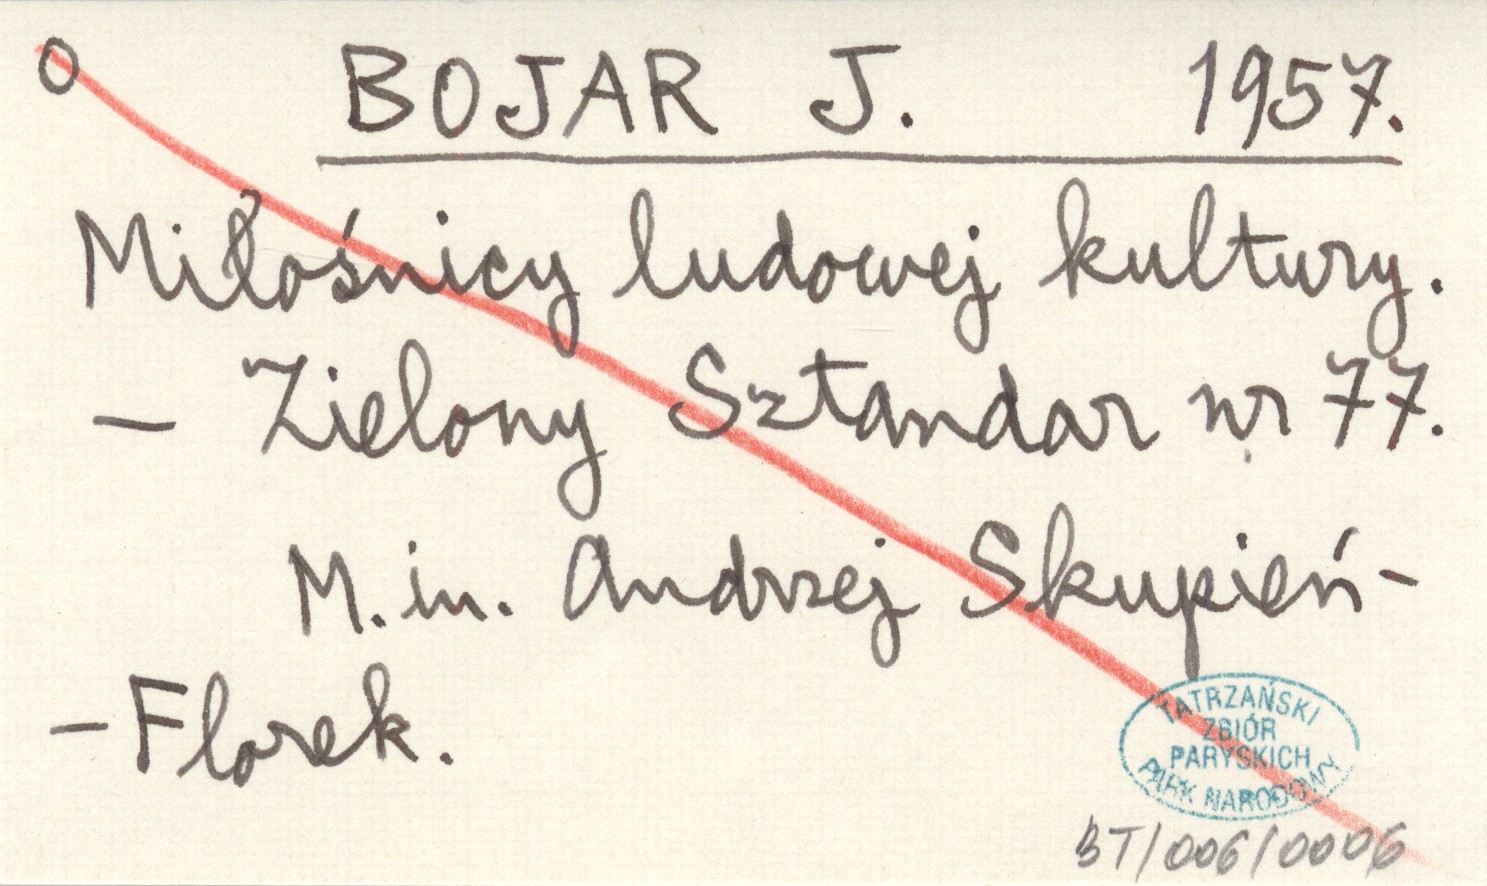 O BOJAR J. 1957.
Miłośnicy ludowej kultury.
– Zielony Sztandar nr 77.
M. in. Andrzej Skupień-
-Florek.
TATRZAŃSKI
ZBIÓR
PARYSKICH
PARK NARODOWY
BT/006/0006